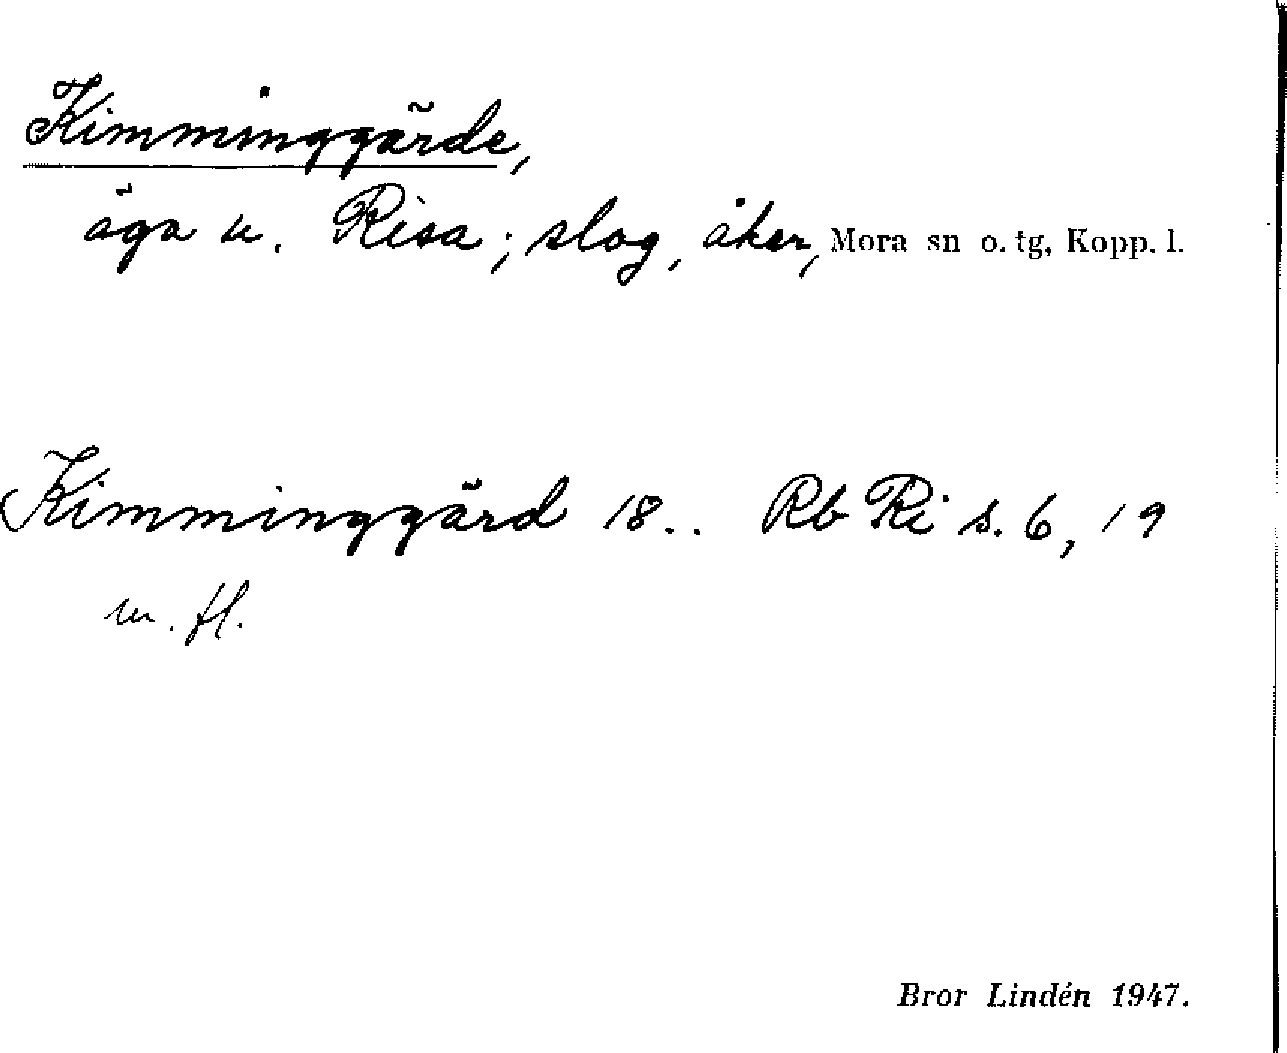 Kimminggärde,
äga u. Risa; slog, åker, Mora sn o. tg, Kopp. l.
Kimminggärd 18.. Rb Ri s. 6, 19
m. fl.
Bror Lindén 1947.